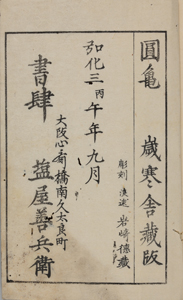 圓亀 歳寒舎蔵版
彫刻 浪速 岩﨑徳蔵
弘化三丙午年九月
大阪心斎橋南久太良町
書肆 塩屋善兵衛